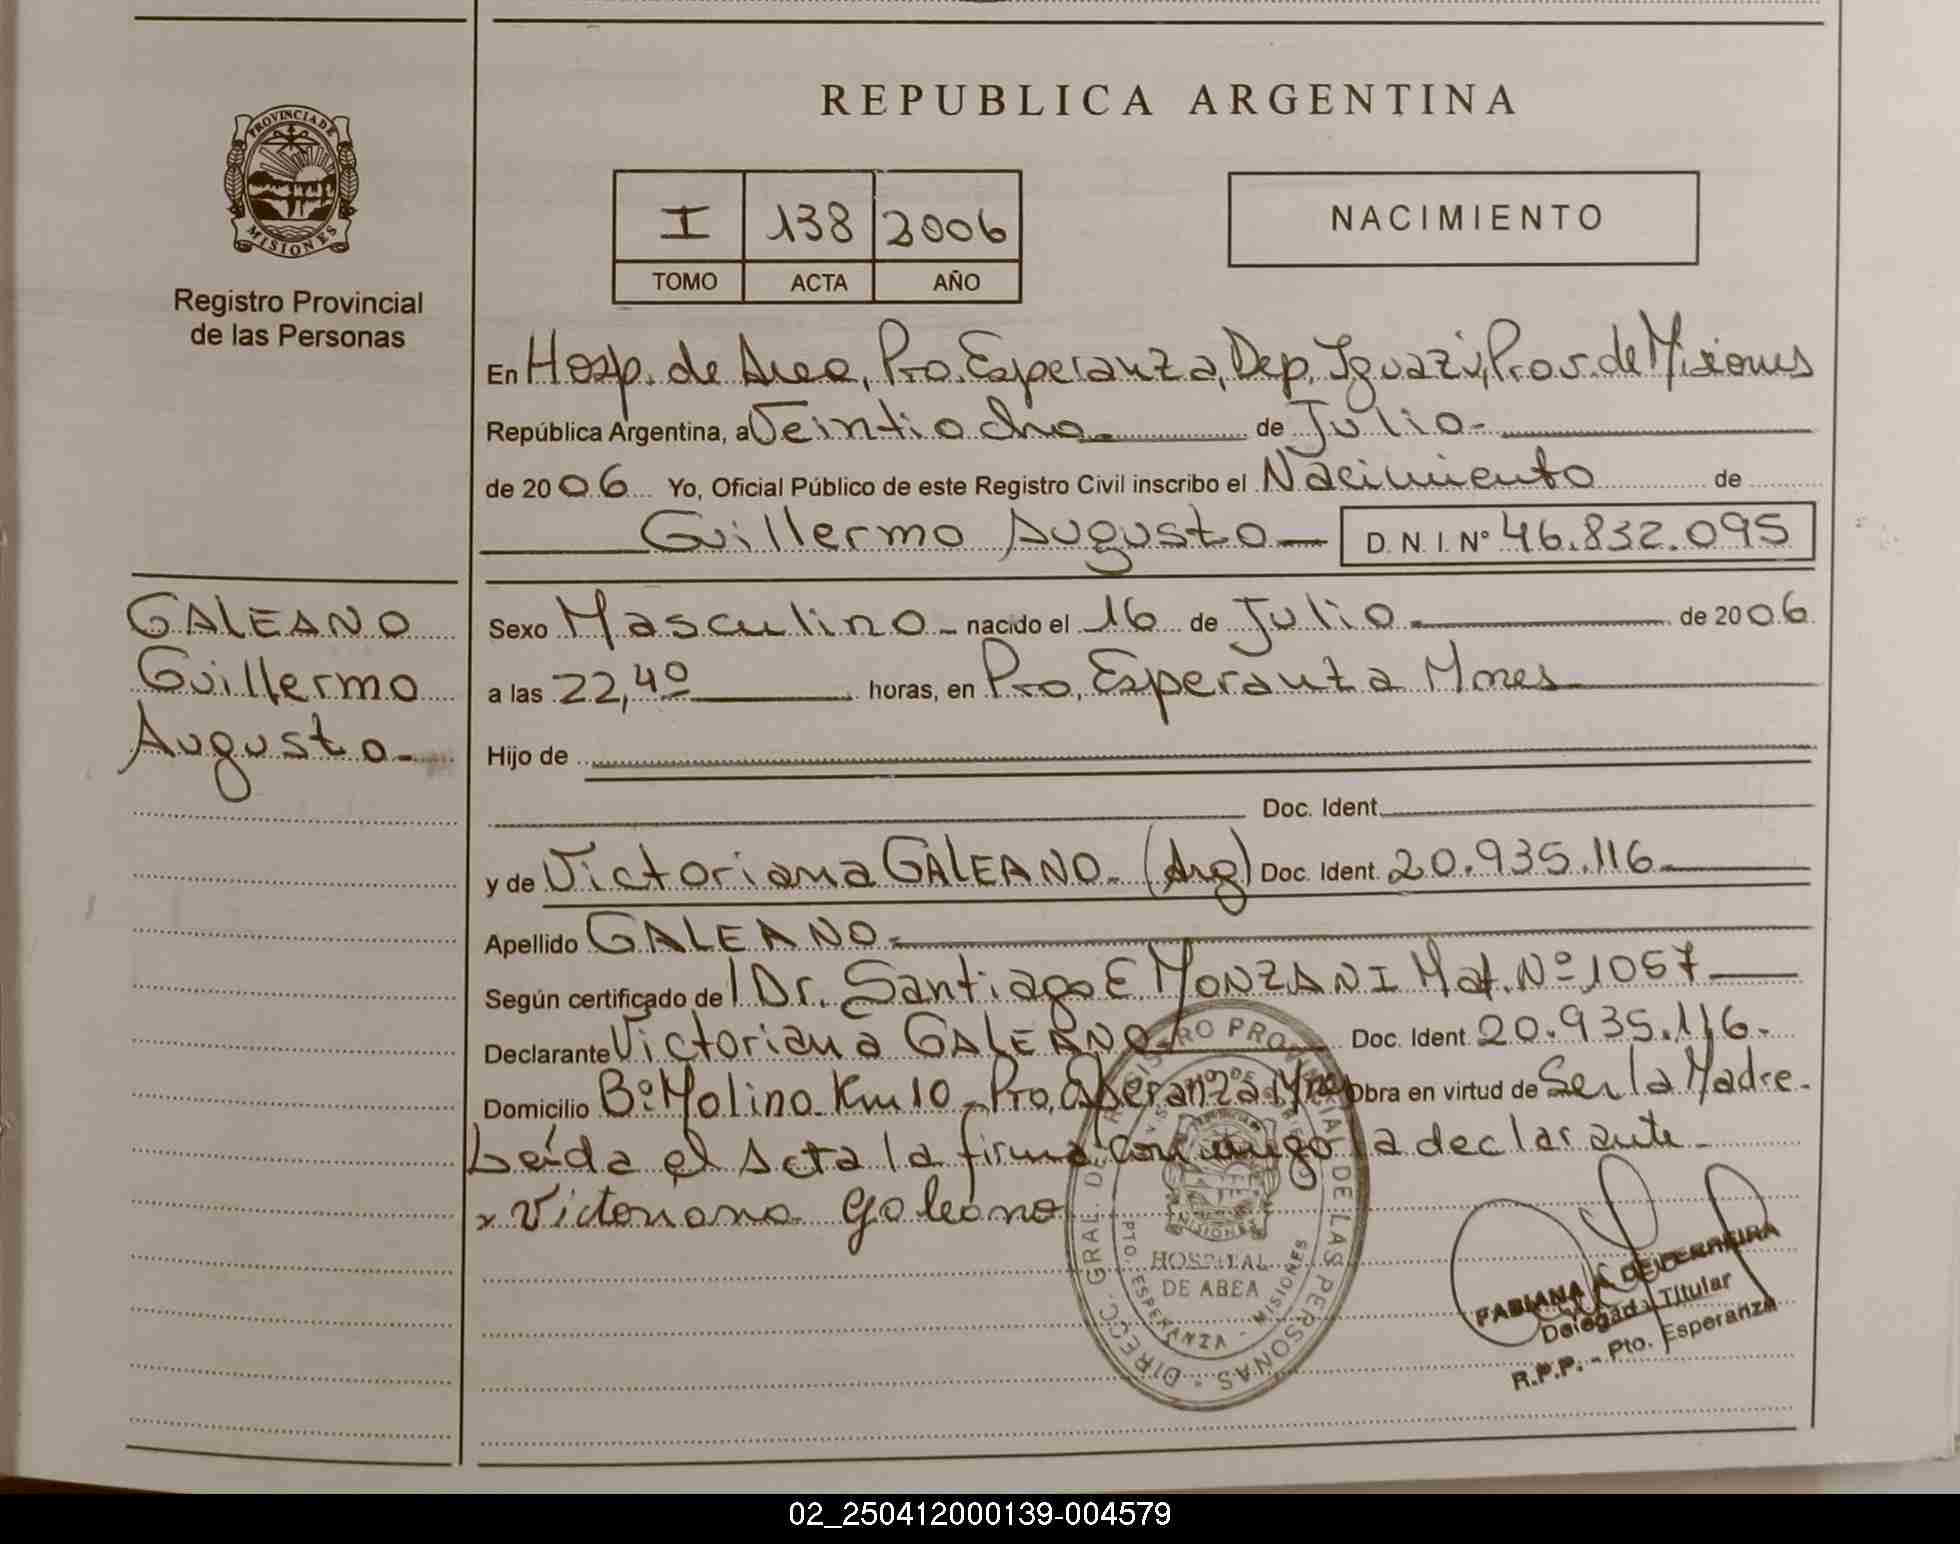 REPUBLICA ARGENTINA
PROVINCIA DE MISIONES
Registro Provincial
de las Personas
I 138 2006
TOMO ACTA AÑO
NACIMIENTO
En Hosp. de Area, Pto. Esperanza, Dep. Iguazú, Prov. de Misiones
República Argentina, a Veintiocho de Julio
de 2006 Yo, Oficial Público de este Registro Civil inscribo el Nacimiento de
Guillermo Augusto D.N.I.Nº 46.832.095
GALEANO
Guillermo
Augusto
Sexo Masculino nacido el 16 de Julio de 2006
a las 22,40 horas, en Pto. Esperanza Mnes
Hijo de
Doc. Ident.
y de Victoriana GALEANO. (Arg) Doc. Ident. 20.935.116
Apellido GALEANO
Según certificado de Dr. Santiago E. MONZANI Mat. Nº 1057
Declarante Victoriana GALEANO Doc. Ident. 20.935.116
Domicilio Bº Molino Km 10 - Pto. Esperanza Mnes Obra en virtud de Ser la Madre.
Leída el Acta la firma conmigo la declarante
x Victoriana Galeano
DIRECC. GRAL. DE REGISTRO PROVINCIAL DE LAS PERSONAS
MISIONES
HOSPITAL
DE AREA
PTO. ESPERANZA - MISIONES
FABIANA A. DE FERREIRA
Delegada Titular
R.P.P. - Pto. Esperanza
02_250412000139-004579